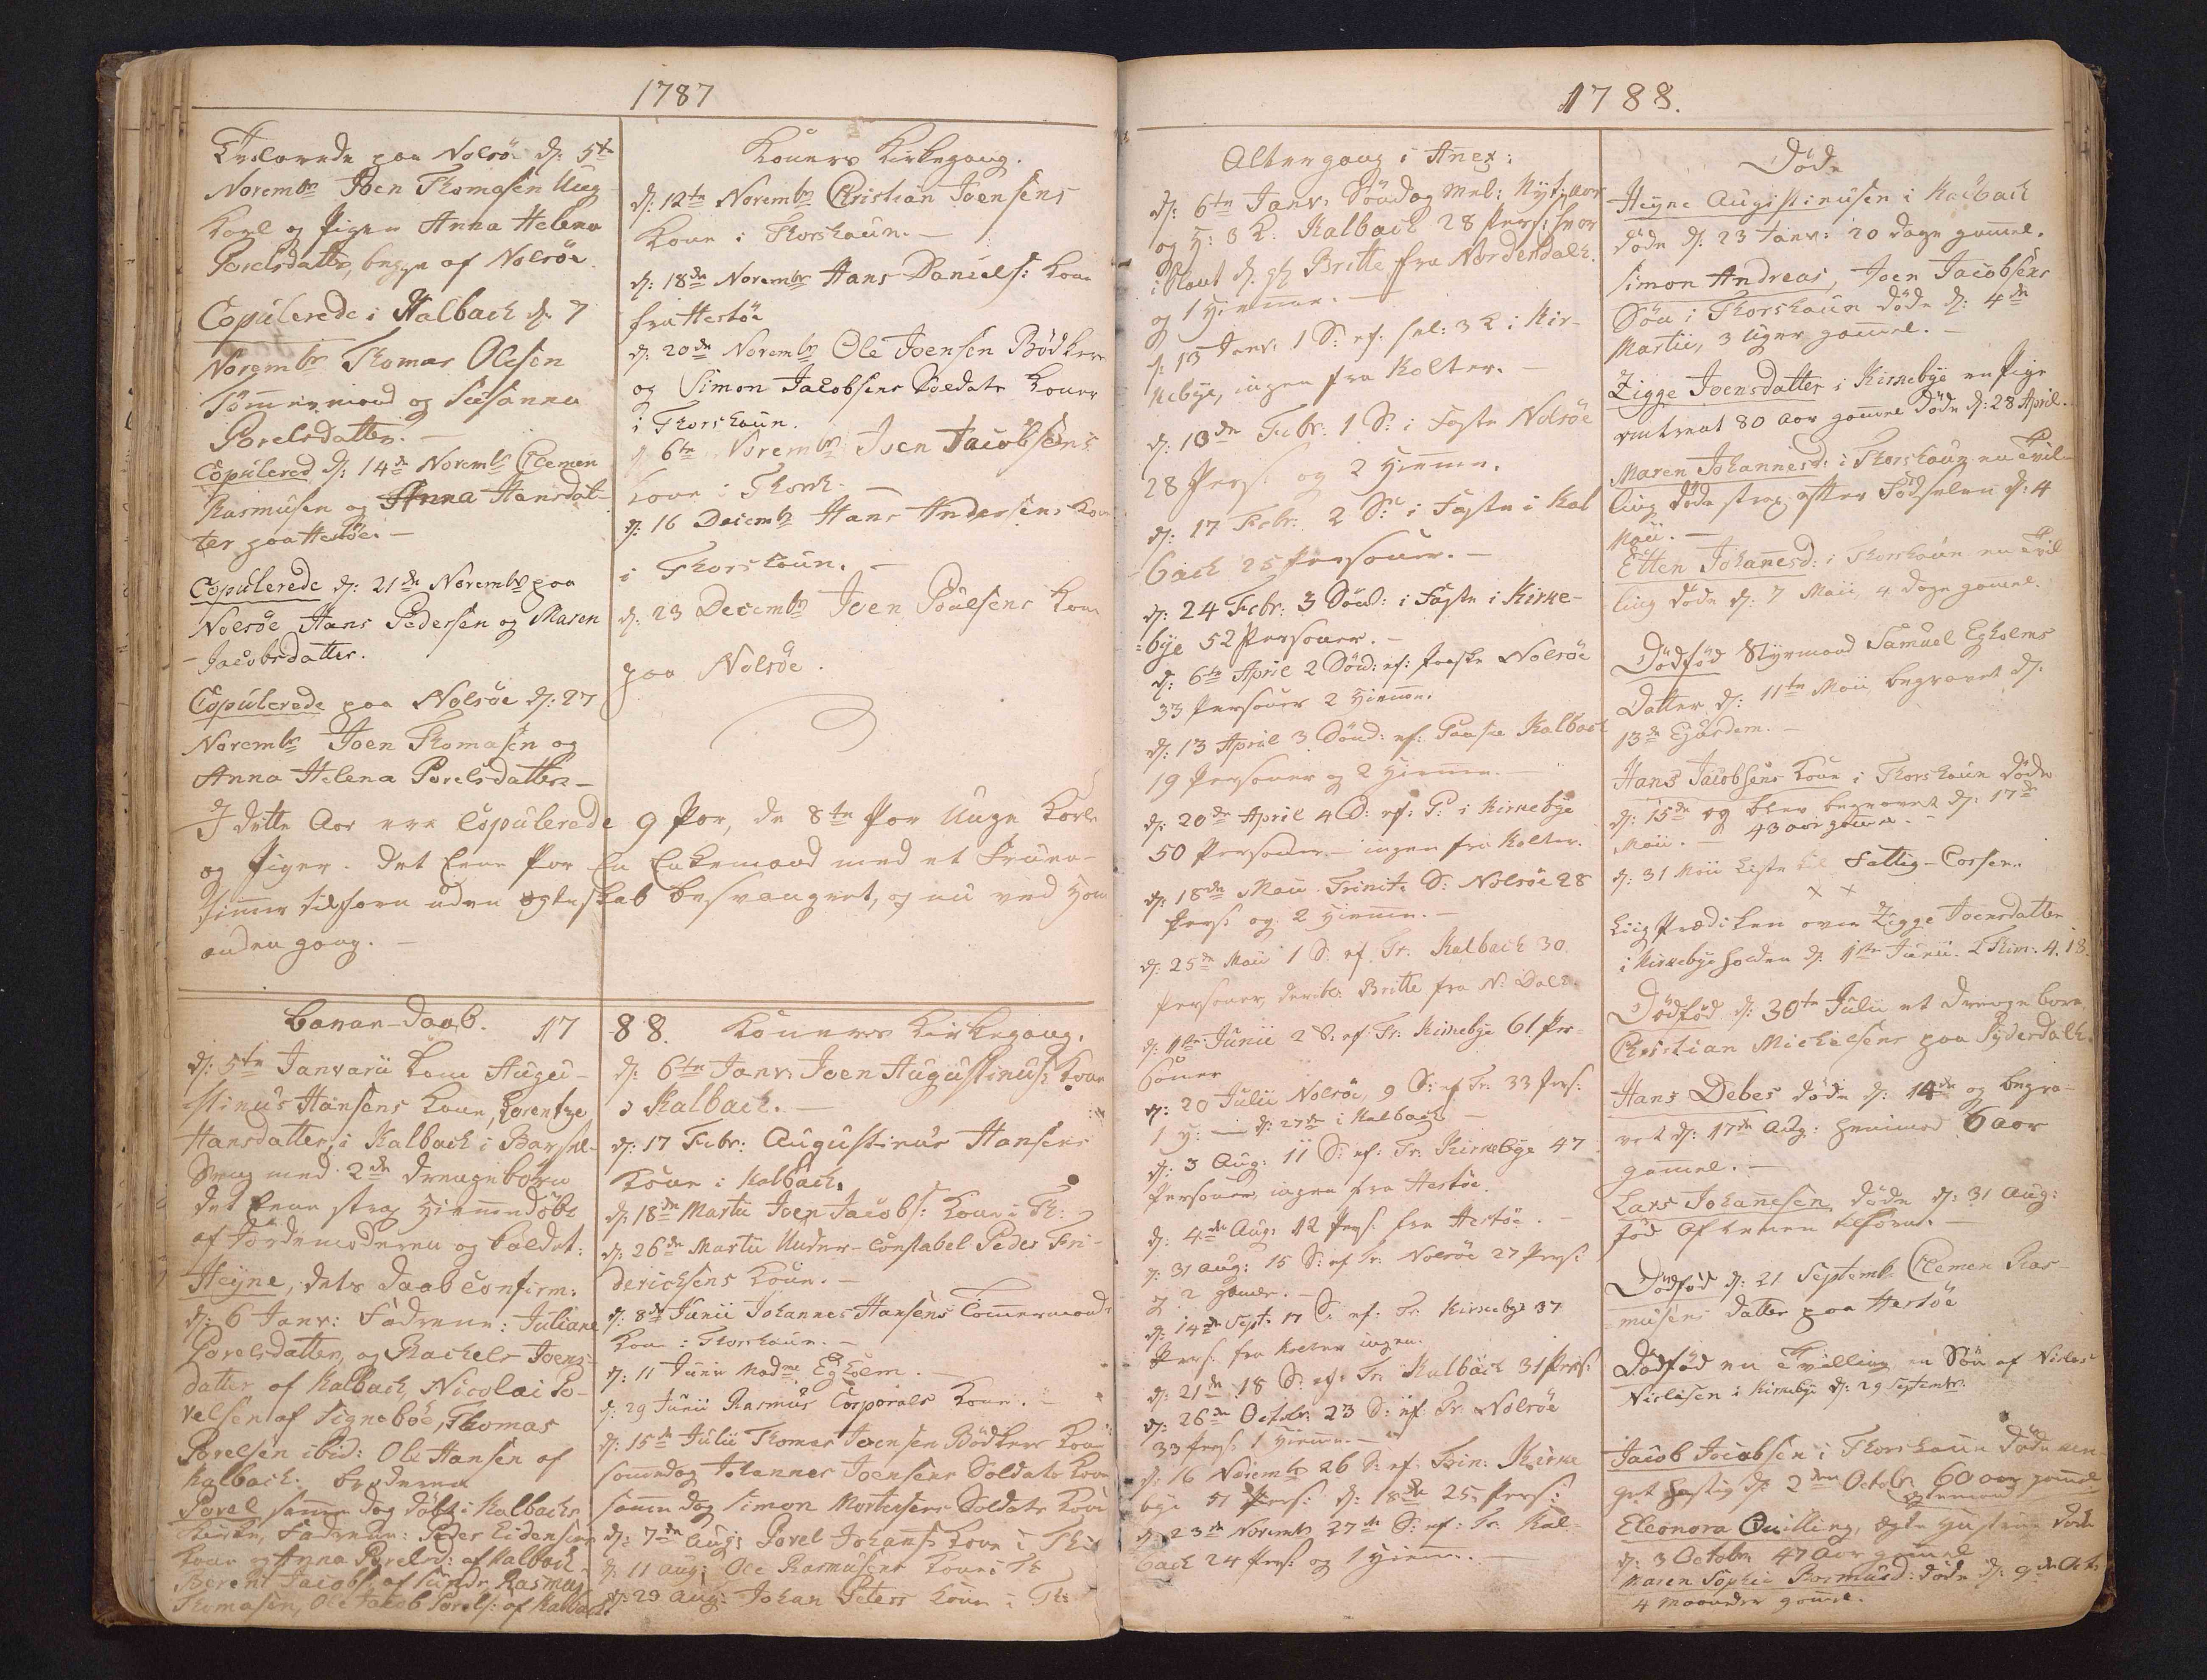 1787
Trolovede paa Nolsöe d: 5te
Novembr Joen Thomasen Ung
Karl og Pigen Anna Helena
Povelsdatter, begge af Nolsöe.
Copulerede i Kalbach d: 7
Novembr Thomas Olesen
Tömmermand og Susanna
Povelsdatter.
Copulered d: 14de Novembr Clemen
Rasmusen og Anna Hansdat-
ter paa Hestöe.
Copulerede d: 21de Novembr paa
Nolsöe Hans Pedersen og Maren
Jacobsdatter.
Copulerede paa Nolsöe d: 27
Novembr Joen Thomasen og
Anna Helena Povelsdatter.
Koners Kirkegang.
d: 12te Novembr Christian Joensens
Kone i Thorshaun.
d: 18de Novembr Hans Daniels: Kone
fra Hestöe
d: 20de Novembr Ole Joensen Bödkers
og Simon Jacobsens Soldats Koner
i Thorshaun.
d 6te Novembr Joen Jacobsens
Kone i Thorsh.
d: 16 Decembr Hans Andersens Kone
i Thorshaun.
d: 23 Decembr Joen Poulsens Kone
paa Nolsöe.
I dette Aar ere Copulerede 9 Par, de 8te Par Unge Karle
og Piger. Det Eene Par En Enkemand med et Fruen-
timer tilforn uden Ægteskab besvangret, og nu ved ham
anden gang.
1788.
Barne-Daab.
d: 5te Januarii kom Augu-
stinus Hansens Kone, Lorentze
Hansdatter, i Kalbach i Barsel-
Seng med 2de Drengebörn
det Eene strax hiemmedöbt
af Jordemoderen og kaldet:
Heyne, dets Daab confirm:
d: 6 Janv: Fadrene: Juliane
Povelsdatter, og Rachels Joens-
datter af Kalbach, Nicolai Po-
velsen af Signeböe, Thomas
Povelsen ibid: Ole Hansen af
Kalbach. broderen
Povel samme dag döbt i Kalbachs
Kirke, Fadrene: Peder Eidensens
Kone og Anna Povelsd: af Kalbach
Berent Jacobs: af Sund, Rasmus
Thomasen, Ole Jakob Povels: af Kalbach.
Koners Kirkegang.
d: 6te Janv: Joen Augustinus: Kone
i Kalbach.
d: 17 Febr: Augustinus Hansens
Kone i Kalbach.
d: 18de Martii Joen Jacobs: Kone i Th:
d: 26de Martii Under-Constabel Peder Fri-
derichsens Kone.
d: 8de Junii Johannes Hansens Tömermands
Kone i Thorshaun.
d: 11 Junii Madme Egholm.
d: 29 Junii Rasmus Corporals Kone.
d: 15de Julii Thomas Joensen Bödkers Kone
sammedag Johannes Joensens Soldats Kone
samme dag Simon Mortensens Soldats Kone
d: 7de Aug: Povel Johans: Kone i Th:
d: 11 Aug: Ole Rasmusens Kone i Th
d: 29 Aug: Johan Peters Kone i Th:
1788.
Altergang i Anex:
d: 6te Janv: Söndag mel: Nytaar
og H: 3 K. Kalbach 28 Pers: hvor
iblant d. gl Britte fra Nordendalh.
og 1 hiemme.
d: 13 Janv: 1 S: ef: hel: 3 K i Kir-
kebye, ingen fra Kolter.
d: 10de Febr: 1 S: i Faste Nolsöe
28 Pers: og 2 hiemme.
d: 17 Febr: 2 S: i Faste i Kal
bach 25 Personer.
d: 24 Febr: 3 Sönd: i Faste i Kirke-
bye 52 Personer.
d: 6te April 2 Sönd: ef: Paaske Nolsöe
33 Personer 2 hiemme.
d: 13 April 3 Sönd: ef: Paaske Kalbach
19 Personer og 2 hiemme.
d: 20de April 4 S: ef: P: i Kirkebye
50 Personer - ingen fra Kolter.
d: 18de Maii Trinit: S: Nolsöe 28
Pers: og 2 hiemme.
d: 25de Maii 1 S. ef Tr. Kalbach 30
Personer, deribl: Britte fra N: Dalh.
d: 1te Junii 2 S. ef: Tr: Kirkebye 61 Per-
soner
d: 20 Julii Nolsöe, 9 S: ef Tr: 33 Pers:
1 h: - d: 27de i Kalbach
d: 3 Aug: 11 S: ef: Tr: Kirkebye 47
Personer, ingen fra Hestöe.
d: 4de Aug: 12 Pers: fra Hestöe.
d: 31 Aug: 15 S: ef Tr. Nolsöe 27 Pers:
og 2 hiemme.
d: 14de Sept: 17 S: ef: Tr: Kirkebye 37
Pers: fra Kolter ingen.
d: 21de 18 S: ef: Tr: Kalbach 31 Pers:
d: 26de Octobr: 23 S: ef: Tr: Nolsöe
33 Pers: 1 hiemme.
d: 16 Novembr 26 S: ef: Trin: Kirke
bye 51 Pers: d: 18de 25 Pers:
d: 23de Novembr 27de S: ef: Tr: Kal-
bach 24 Pers: og 1 hiemme.
Döde
Heyne Augustinusen i Kalbach
döde d: 23 Janv: 20 dage gammel.
Simon Andreas, Joen Jacobsens
Sön i Thorshaun döde d: 4de
Martii, 3 Uger gammel.
Zigge Joensdatter i Kirkebye en Pige
omtrent 80 Aar gammel döde d: 28 April.
Maren Johannesd: i Thorshaun en Tvil
ling döde strax efter Födselen d: 4
Maii.
Ellen Johanesd: i Thorshaun en Tvil
ling döde d: 7 Maii, 4 dage gammel.
Dödföd Styrmand Samuel Egholms
Datter d: 11te Maii begravet d:
13de Ejusdem.
Hans Jacobsens Kone i Thorshaun döde
d: 15de og blev begravet d: 17de
Maii. 43 aar gammel.
d: 31 Maii Liste til Fattig-Cassen.
Liig Prædiken over Zigge Joensdatter
i Kirkebye holden d: 1te Junii. 2 Thim: 4. 18.
Dödföd d: 30te Julii et drengebarn
Christian Michelsens paa Syderdalh.
Hans Debes döde d: 14de og begra-
vet d: 17de Aug: henimod 6 aar
gammel.
Lars Johanesen döde d: 31 Aug:
föd
Dödföd d: 21 Septembr Clemen Ras-
musens datter paa Hestöe
Dödföd en Tvilling en Sön af Niclas
Niclasen i Kirkebye d: 29 Septembr.
Jacob Jacobsen i Thorshaun döde me-
get hastig d: 2den Octobr 60 aar gammel
Eleonora Quilling, Ægte Hustrue döde
d: 3 Octobr 47 Aar gammel
Maren Sophie Rasmusd: döde d: 9de Oct:
4 Maaneder gammel.